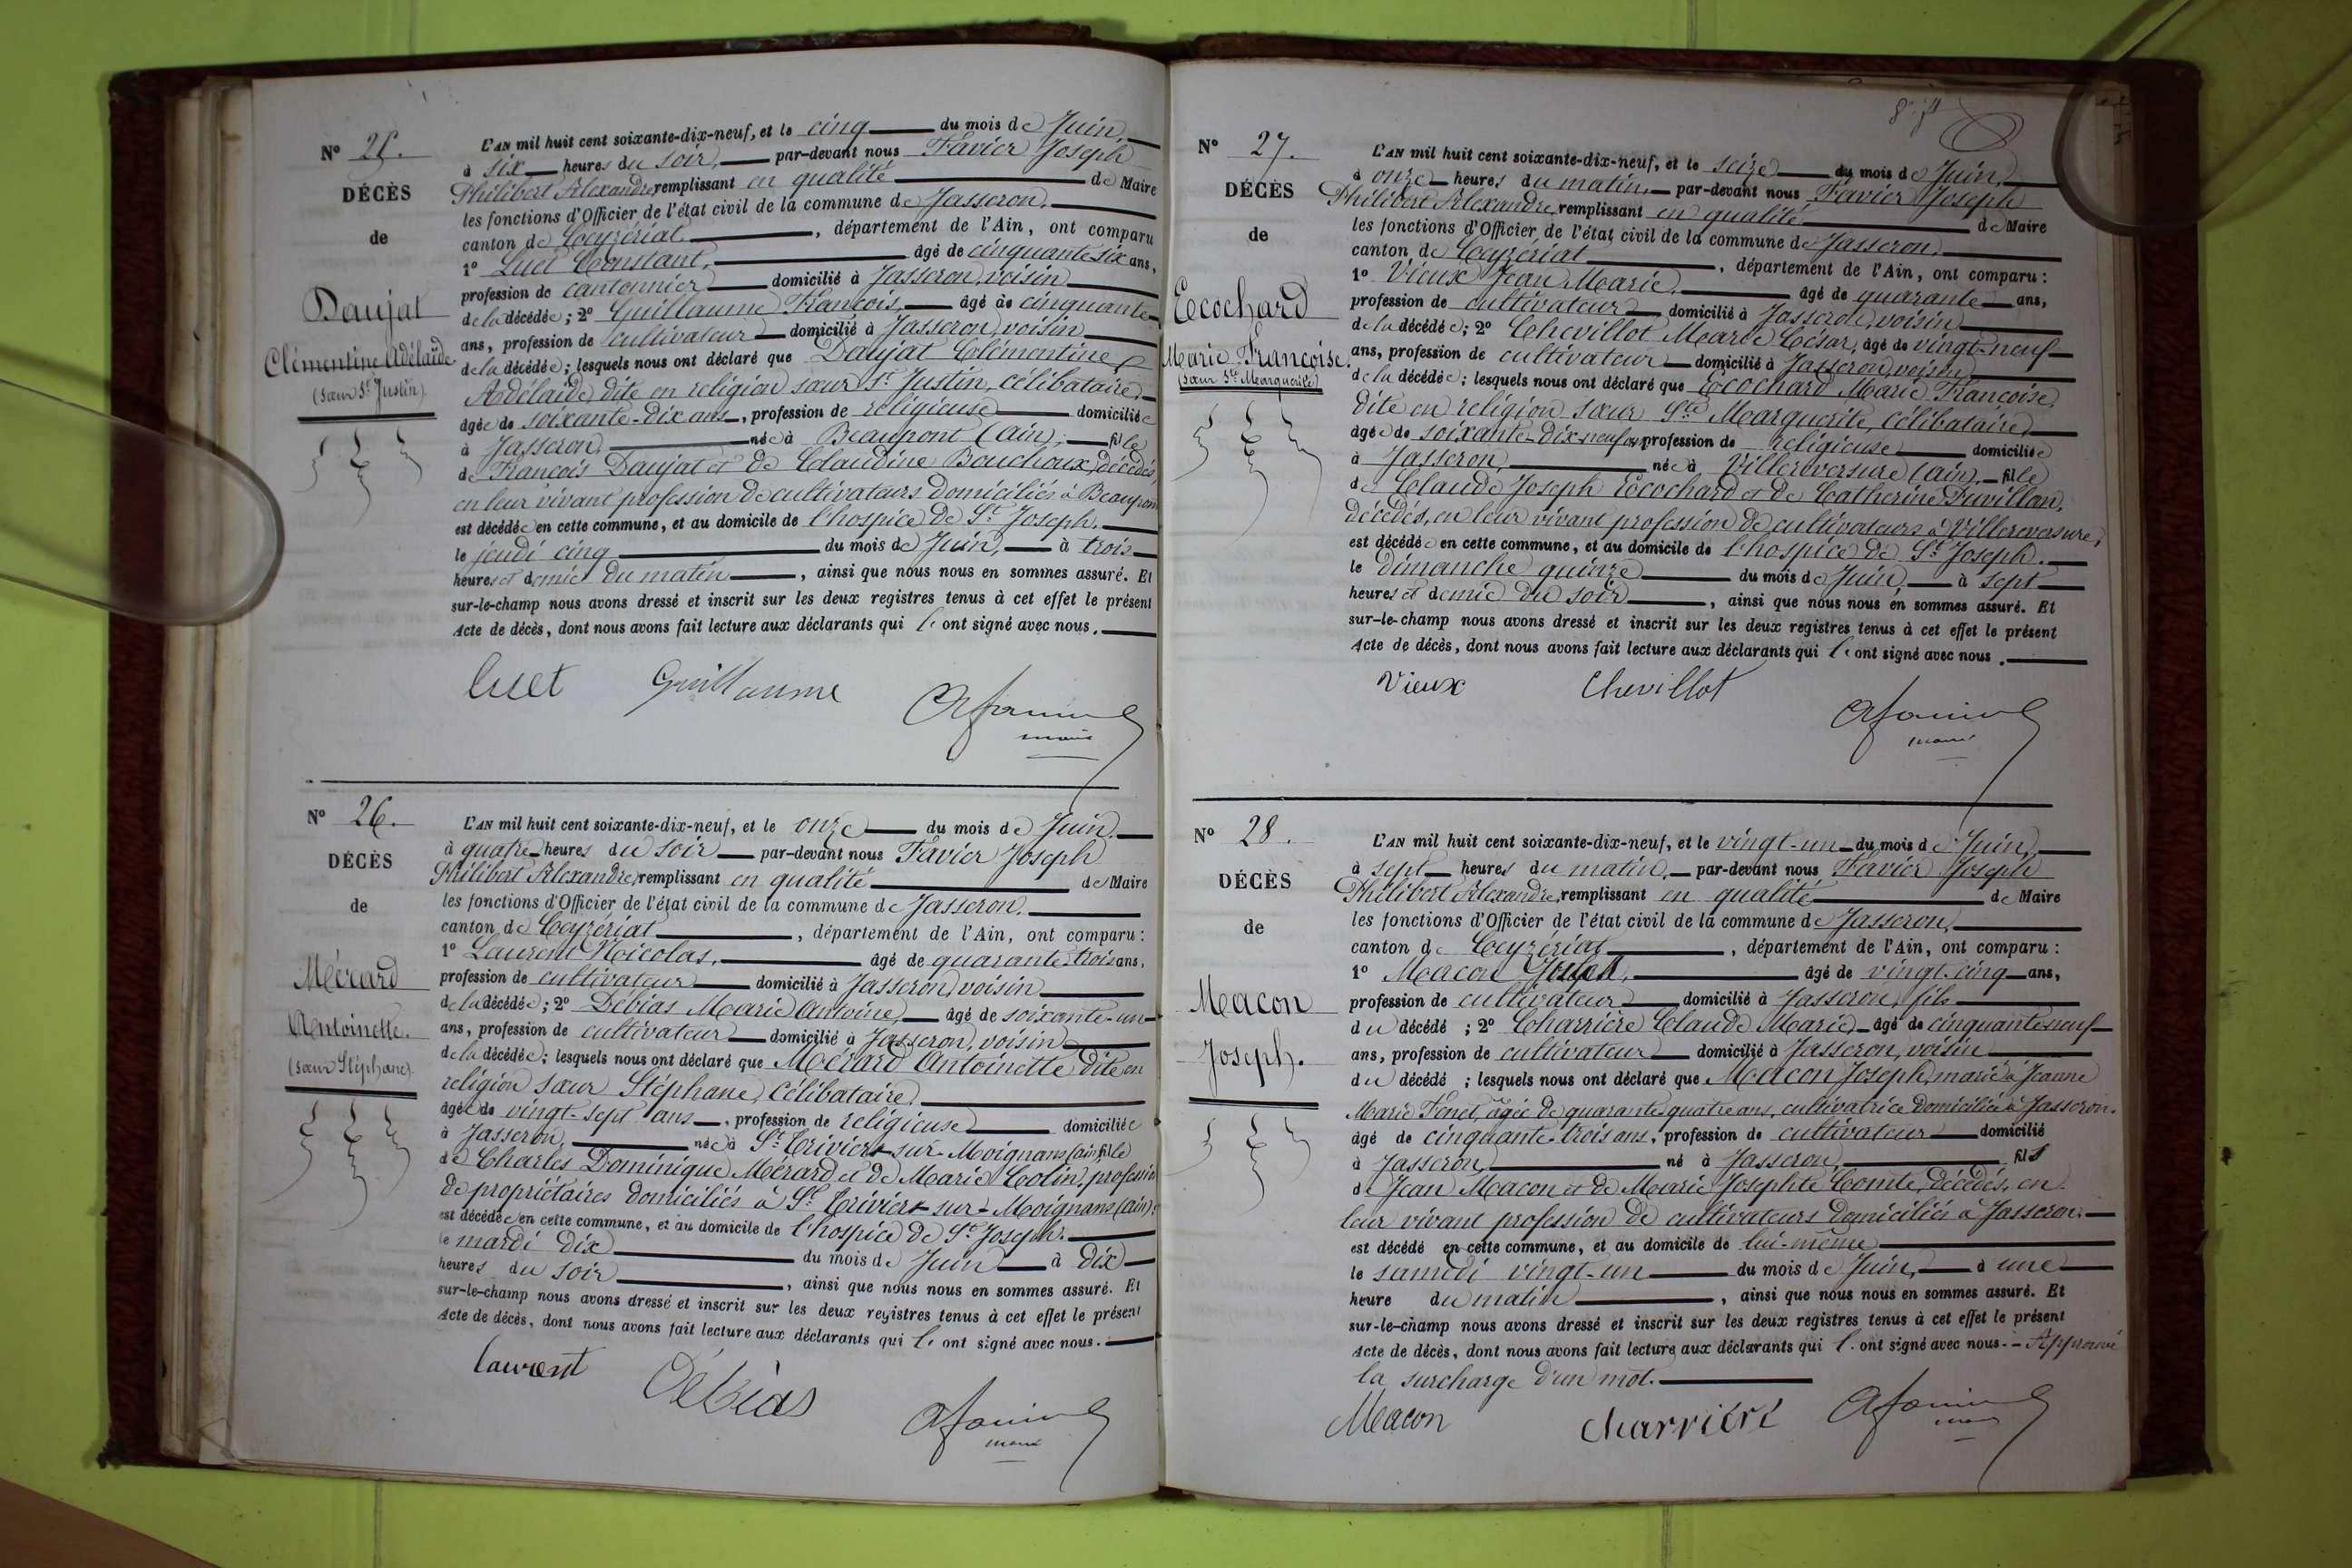 N° 25.
DÉCÈS
de
Daujat
Clémentine Adélaïde
(Sœur St Justin)
L'AN mil huit cent soixante-dix-neuf, et le cinq du mois de Juin,
à six heures du soir, par-devant nous Favier Joseph
Philibert Alexandre, remplissant en qualité de Maire
les fonctions d'Officier de l'état civil de la commune de Jasseron,
canton de Ceyzériat, département de l'Ain, ont comparu
1° Luet Constant, âgé de cinquante six ans,
profession de cantonnier domicilié à Jasseron, voisin
de la décédée; 2° Guillaume François, âgé de cinquante
ans, profession de cultivateur domicilié à Jasseron, voisin
de la décédée; lesquels nous ont déclaré que Daujat Clémentine
Adélaïde, dite en religion sœur St Justin, célibataire,
âgée de soixante-dix ans, profession de religieuse domiciliée
à Jasseron, née à Beaupont (Ain), fille
de François Daujat et de Claudine Bouchoux, décédés,
en leur vivant profession de cultivateurs domiciliés à Beaupont
est décédée en cette commune, et au domicile de l'hospice de St Joseph.
le jeudi cinq du mois de Juin, à trois
heures et demie du matin, ainsi que nous nous en sommes assuré. Et
sur-le-champ nous avons dressé et inscrit sur les deux registres tenus à cet effet le présent
Acte de décès, dont nous avons fait lecture aux déclarants qui l'ont signé avec nous.
Luet Guillaume
maire
N° 26.
DÉCÈS
de
Mérard
Antoinette.
(Sœur Stéphane).
L'AN mil huit cent soixante-dix-neuf, et le onze du mois de Juin,
à quatre heures du soir par-devant nous Favier Joseph
Philibert Alexandre, remplissant en qualité de Maire
les fonctions d'Officier de l'état civil de la commune de Jasseron,
canton de Ceyzériat, département de l'Ain, ont comparu:
1° Laurent Nicolas, âgé de quarante-trois ans,
profession de cultivateur domicilié à Jasseron, voisin
de la décédée; 2° Débias Marie Antoine, âgé de soixante-un
ans, profession de cultivateur domicilié à Jasseron, voisin
de la décédée; lesquels nous ont déclaré que Mérard Antoinette dite en
religion sœur Stéphane, célibataire,
âgée de vingt-sept ans, profession de religieuse domiciliée
à Jasseron, née à St Trivier-sur-Moignans (Ain) fille
de Charles Dominique Mérard et de Marie Colin, profession
de propriétaires domiciliés à St Trivier-sur-Moignans (Ain);
est décédée en cette commune, et au domicile de l'hospice de St Joseph.
le mardi dix du mois de Juin à dix
heures du soir, ainsi que nous nous en sommes assuré. Et
sur-le-champ nous avons dressé et inscrit sur les deux registres tenus à cet effet le présent
Acte de décès, dont nous avons fait lecture aux déclarants qui l'ont signé avec nous.
Laurent Débias
maire
N° 27.
DÉCÈS
de
Ecochard
Marie Françoise.
(Sœur Ste Marguerite)
L'AN mil huit cent soixante-dix-neuf, et le seize du mois de Juin,
à onze heures du matin, par-devant nous Favier Joseph
Philibert Alexandre, remplissant en qualité de Maire
les fonctions d'Officier de l'état civil de la commune de Jasseron,
canton de Ceyzériat, département de l'Ain, ont comparu:
1° Vieux Jean Marie, âgé de quarante ans,
profession de cultivateur domicilié à Jasseron, voisin
de la décédée; 2° Chevillot Marie César, âgé de vingt-neuf
ans, profession de cultivateur domicilié à Jasseron, voisin
de la décédée; lesquels nous ont déclaré que Ecochard Marie Françoise,
dite en religion sœur Ste Marguerite, célibataire,
âgée de soixante-dix-neuf ans, profession de religieuse domiciliée
à Jasseron, née à Villereversure (Ain), fille
de Claude Joseph Ecochard et de Catherine Fuvillan,
décédés, en leur vivant profession de cultivateurs à Villereversure,
est décédée en cette commune, et au domicile de l'hospice de St Joseph.
le dimanche quinze du mois de Juin, à sept
heures et demie du soir, ainsi que nous nous en sommes assuré. Et
sur-le-champ nous avons dressé et inscrit sur les deux registres tenus à cet effet le présent
Acte de décès, dont nous avons fait lecture aux déclarants qui l'ont signé avec nous.
Vieux Chevillot
maire
N° 28.
DÉCÈS
de
Macon
Joseph.
L'AN mil huit cent soixante-dix-neuf, et le vingt-un du mois de Juin,
à sept heures du matin, par-devant nous Favier Joseph
Philibert Alexandre, remplissant en qualité de Maire
les fonctions d'Officier de l'état civil de la commune de Jasseron,
canton de Ceyzériat, département de l'Ain, ont comparu:
1° Macon Joseph, âgé de vingt-cinq ans,
profession de cultivateur domicilié à Jasseron, fils
du décédé; 2° Charrière Claude Marie, âgé de cinquante-neuf
ans, profession de cultivateur domicilié à Jasseron, voisin
du décédé; lesquels nous ont déclaré que Macon Joseph, marié à Jeanne
Marie Fenet, âgée de quarante-quatre ans, cultivatrice domiciliée à Jasseron.
âgé de cinquante-trois ans, profession de cultivateur domicilié
à Jasseron, né à Jasseron, fils
de Jean Macon et de Marie Josephte Comte, décédés, en
leur vivant profession de cultivateurs domiciliés à Jasseron.
est décédé en cette commune, et au domicile de lui-même
le samedi vingt-un du mois de Juin, à une
heure du matin, ainsi que nous nous en sommes assuré. Et
sur-le-champ nous avons dressé et inscrit sur les deux registres tenus à cet effet le présent
Acte de décès, dont nous avons fait lecture aux déclarants qui l'ont signé avec nous. - Approuvé
la surcharge d'un mot.
Macon Charriere